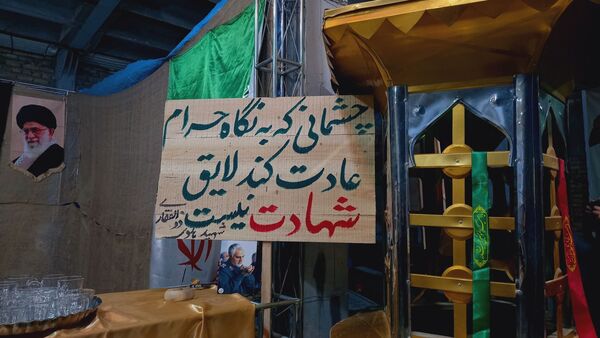 چشمانی که به نگاه حرام
عادت کند لایق
شهادت نیست
شهید هادی ذوالفقاری